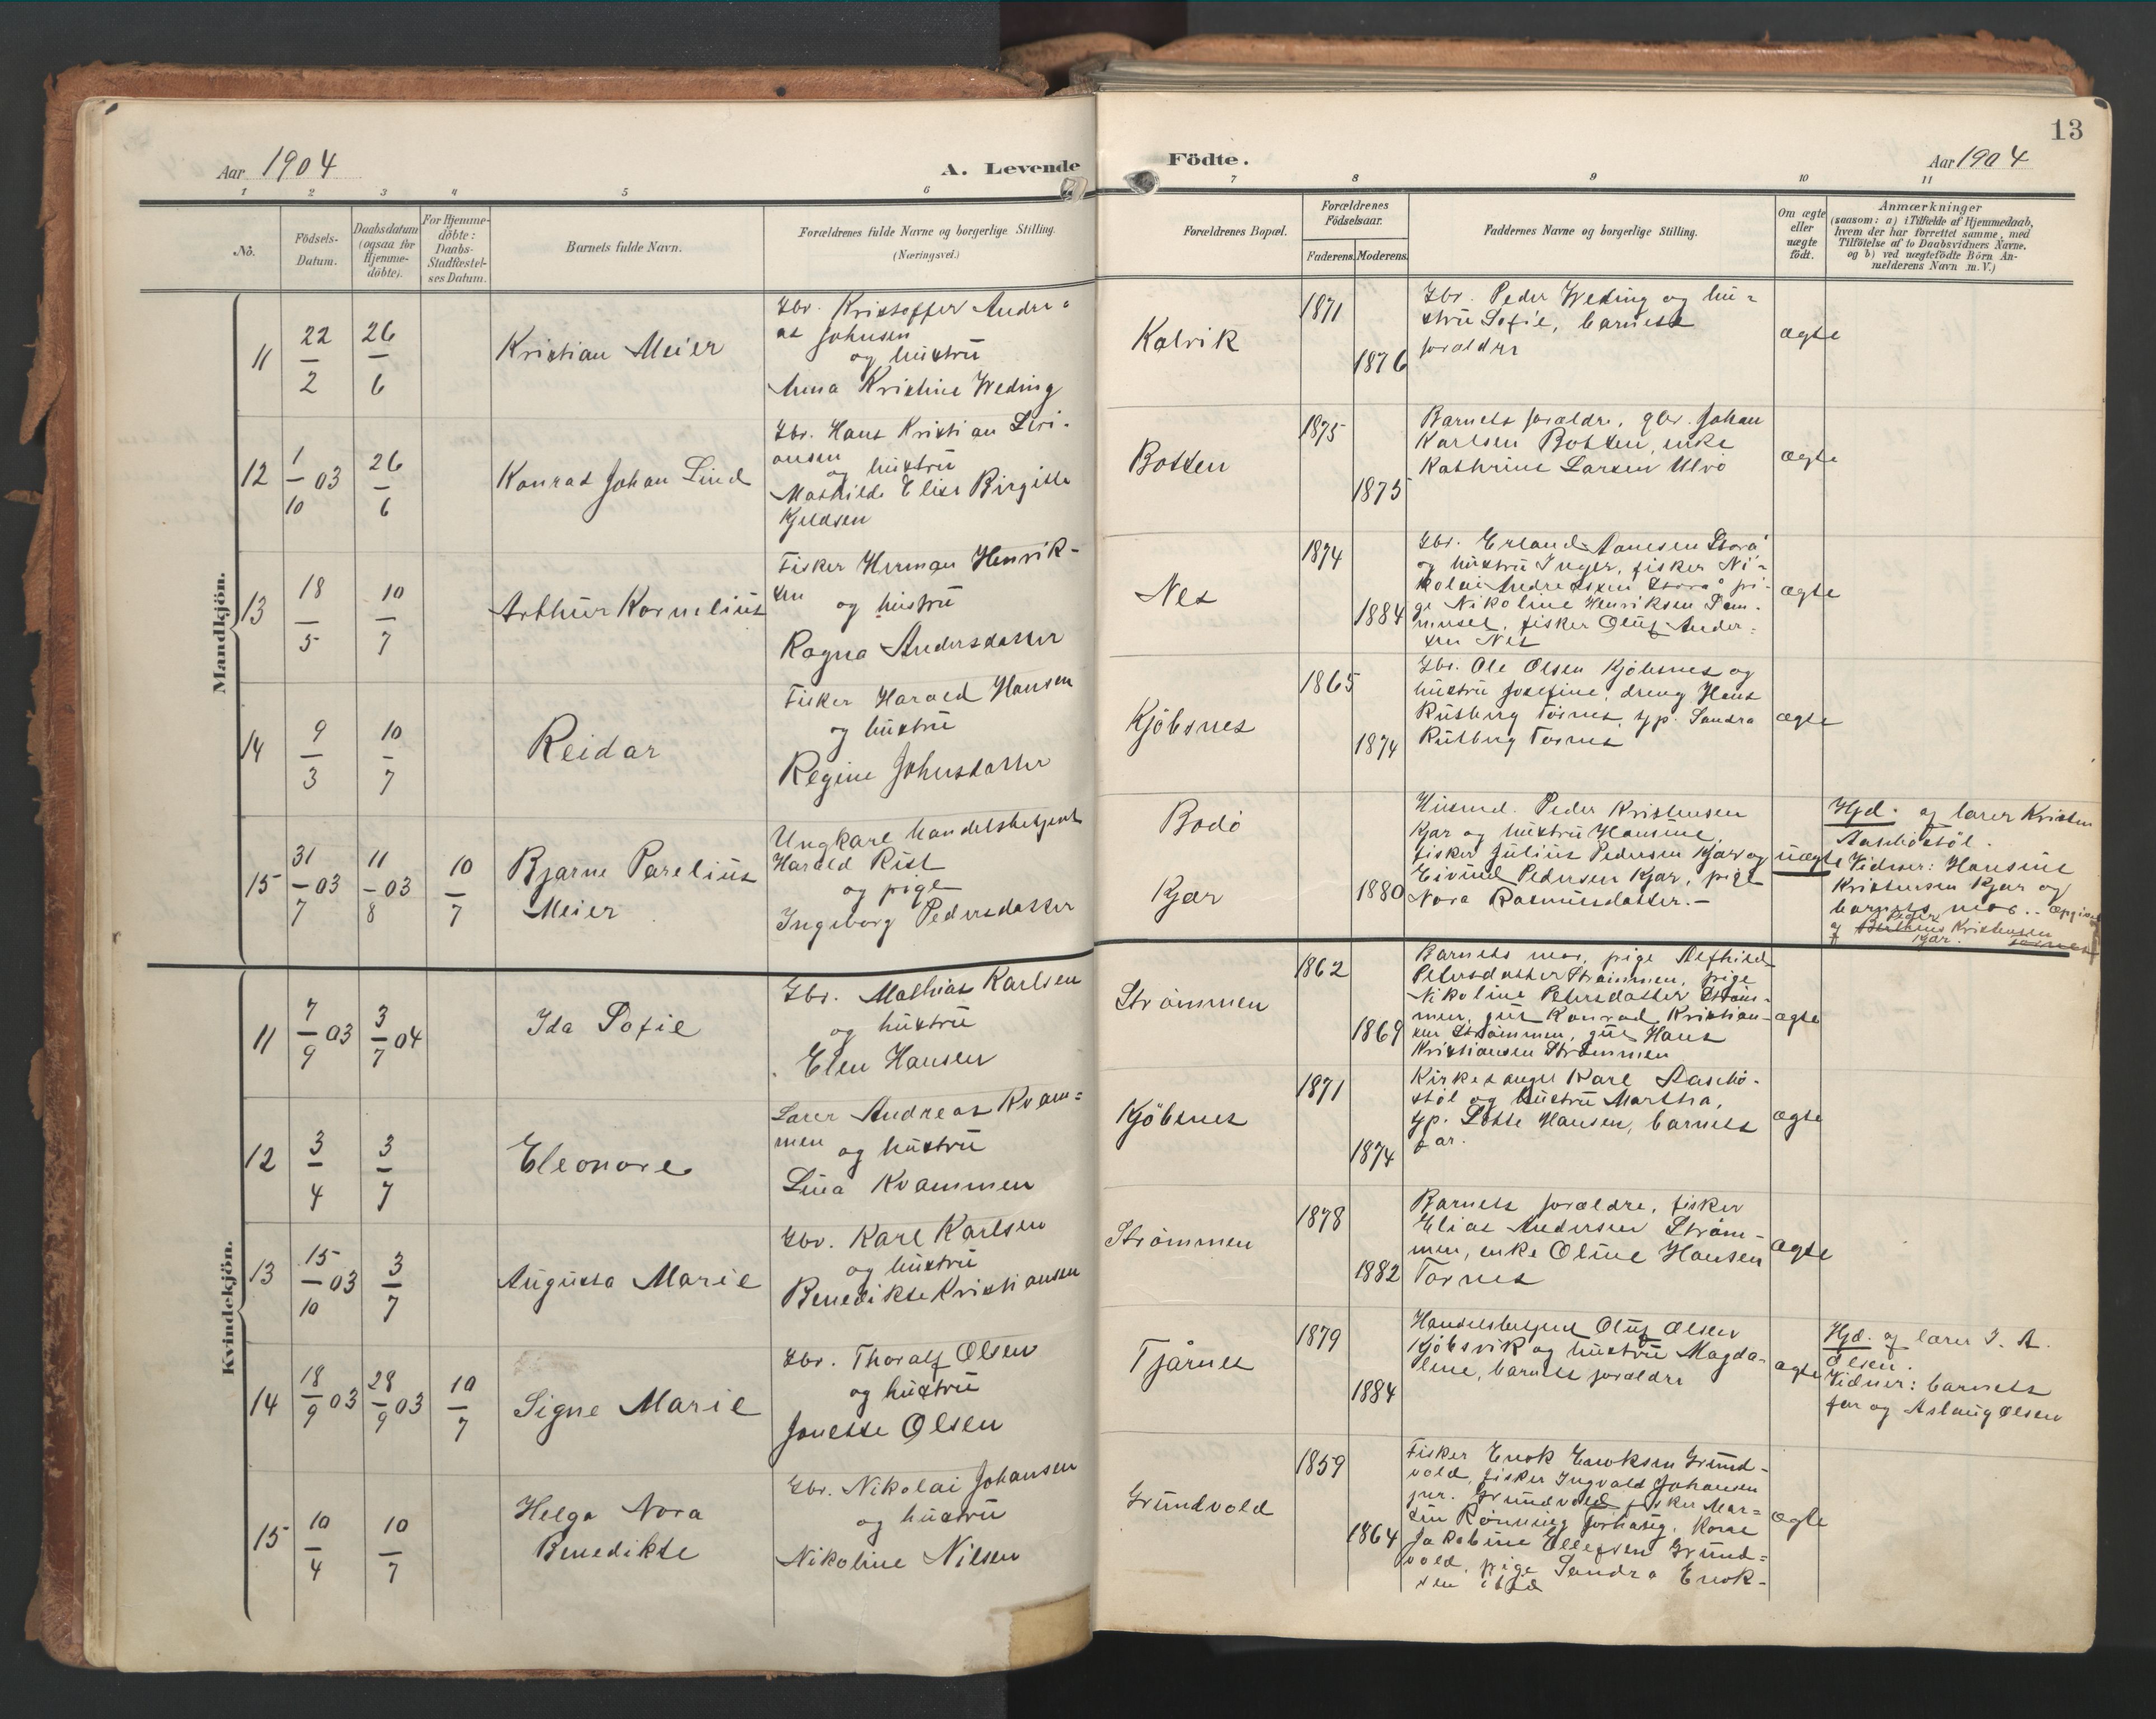 13
Aar 1904
A. Levende
Födte.
Aar 1904
1 2 3 4 5 6
7 8 9 10 11
No.
Födsels-
Datum.
Daabsdatum
(ogsaa for
Hjemme-
döbte).
For Hjemme-
döbte:
Daabs-
Stadfæstel-
ses Datum.
Barnets fulde Navn.
Forældrenes fulde Navne og borgerlige Stilling.
(Næringsvei.)
Forældrenes Bopæl.
Forældrenes
Födselsaar.
Faderens.
Moderens.
Faddernes Navne og borgerlige Stilling.
Om ægte
eller
uægte
födt.
Anmærkninger
(saasom: a) i Tilfælde af Hjemmedaab,
hvem der har forrettet samme, med
Tilföielse af to Daabsvidners Navne.
og b) ved uægtefödte Börn An-
melderens Navn m.V.)
Mandkjön.
11
22/2
26/6
Kristian Meier
Gbr. Kristoffer Andre=
as Johnsen
og hustru
Anna Kristine Weding
Kalvik
1871
1876
Gbr. Peder Weding og hu=
stru Sofie, barnets
foraldre
ægte
12
1/10 03
26/6
Konrad Johan Lind
Gbr. Hans Kristian
ansen
og hustru
Mathilde Elise Birgitte
Kjeldsen
Botten
1875
1875
Barnets foraldre, gbr. Johan
Karlsen Botten, enke
Kathrine Larsen Ulvö
ægte
13
18/5
10/7
Arthur Kornelius
Fisker Herman Henrik-
sen
og hustru
Ragna Andersdatter
Nes
1874
1884
Gbr. Erland Storå
og hustru Inger, fisker Ni-
kolai Storå pi-
ge Nikoline Henriksen
fisker Oluf Ander-
sen Nes
ægte
14
9/3
10/7
Reidar
Fisker Harald Hansen
og hustru
Regine Johnsdatter
Kjöbsnes
1865
1874
Gbr. Ole Olsen Kjöbsnes og
hustru Josefine, dreng Hans
Rusberg Törnes, gp. Sandra
Rusberg Törnes
ægte
15
31/7 03
11/8 03
10/7
Bjarne Parelius
Meier
Ungkarl handelsbetjent
Harald Rist
og pige
Ingeborg Pedersdatter
Bodö
Kjær
1880
Husmd. Peder Kristensen
Kjær og hustru Hansine,
fisker Julius Pedersen Kjær og
Eivind Pedersen Kjær, pige
Nora Rasmusdatter.-
uægte
Hjd. af lærer Kristen
Vidner: Hansine
Kristensen Kjær og
barnets mor.
Kristensen
Kjær.
Kvindekjön.
11
7/9 03
3/7 04
Ida Sofie
Gbr. Mathias Karlsen
og hustru
Elen Hansen
Strömmen
1862
1869
Barnets mor, pige Alfhild
Petersdatter Strömmen, pige
Nikoline Petersdatter Ström-
men, gut Konrad Kristian-
sen Strömmen, gut Hans
Kristiansen Strömmen
ægte
12
3/4
3/7
Eleonore
Lærer Andreas Kvam=
men og hustru
Lina Kvammen
Kjöbsnes
1871
1874
Kirkesanger Karl
og hustru Martha,
gp. Lotte Hansen, barnets
far.
ægte
13
15/10 03
3/7
Augusta Marie
Gbr. Karl Karlsen
og hustru
Benedikte Kristiansen
Strömmen
1878
1882
Barnets foraldre, fisker
Elias Andersen Ström-
men, enke Oline Hansen
Törnes
ægte
14
18/9 03
28/9 03
10/7
Signe Marie
Gbr. Thoralf Olsen
og hustru
Janette Olsen
Tjårnes
1879
1884
Handelsbetjent Oluf Olsen
Kjöbsvik og hustru Magda-
lene, barnets foraldre
ægte
Hjd. af lærer I. A.
Olsen.
Vidner: barnets
far og Aslaug Olsen
15
10/4
10/7
Helga Nora
Benedikte
Gbr. Nikolai Johansen
og hustru
Nikoline Nilsen
Grundvold
1859
1864
Fisker Enok Enoksen Grund-
vold, fisker Ingvald Johansen
jnr. Grundvold, fisker Mar-
tin Rönning kone
Jakobine Ellefsen Grund=
vold, pige Sandra Enok-
sen ibd
ægte